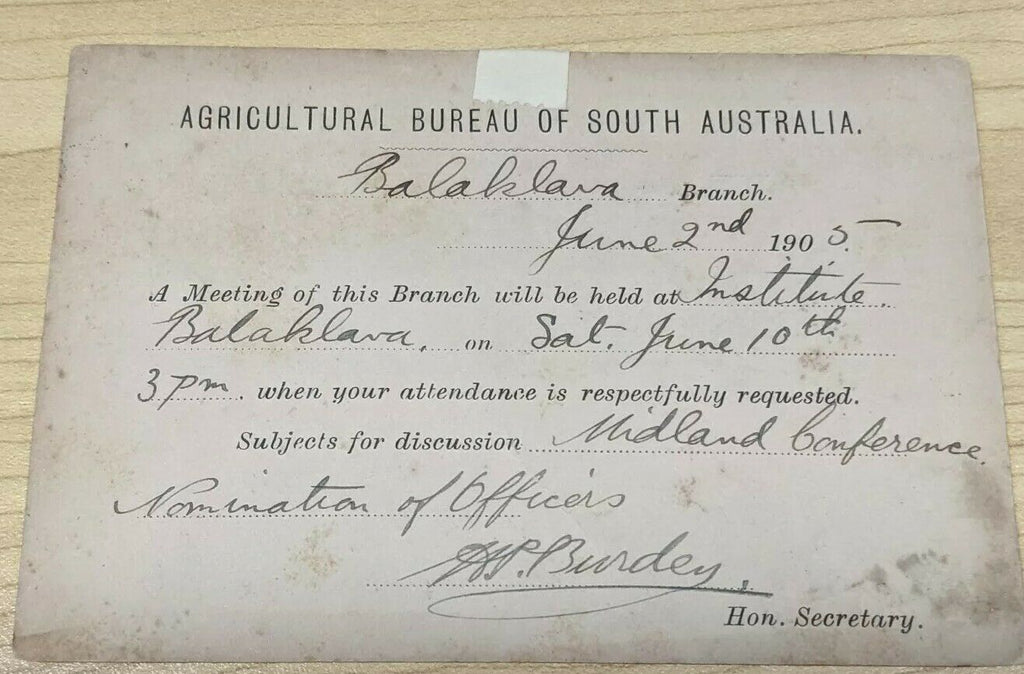 AGRICULTURAL BUREAU OF SOUTH AUSTRALIA.
Balaklava Branch.
June 2nd 1905.
A Meeting of this Branch will be held at Institute.
Balaklava, on Sat. June 10th
3 pm. when your attendance is respectfully requested.
Subjects for discussion Midland Conference.
Nomination of Officers
Burdey
Hon. Secretary.